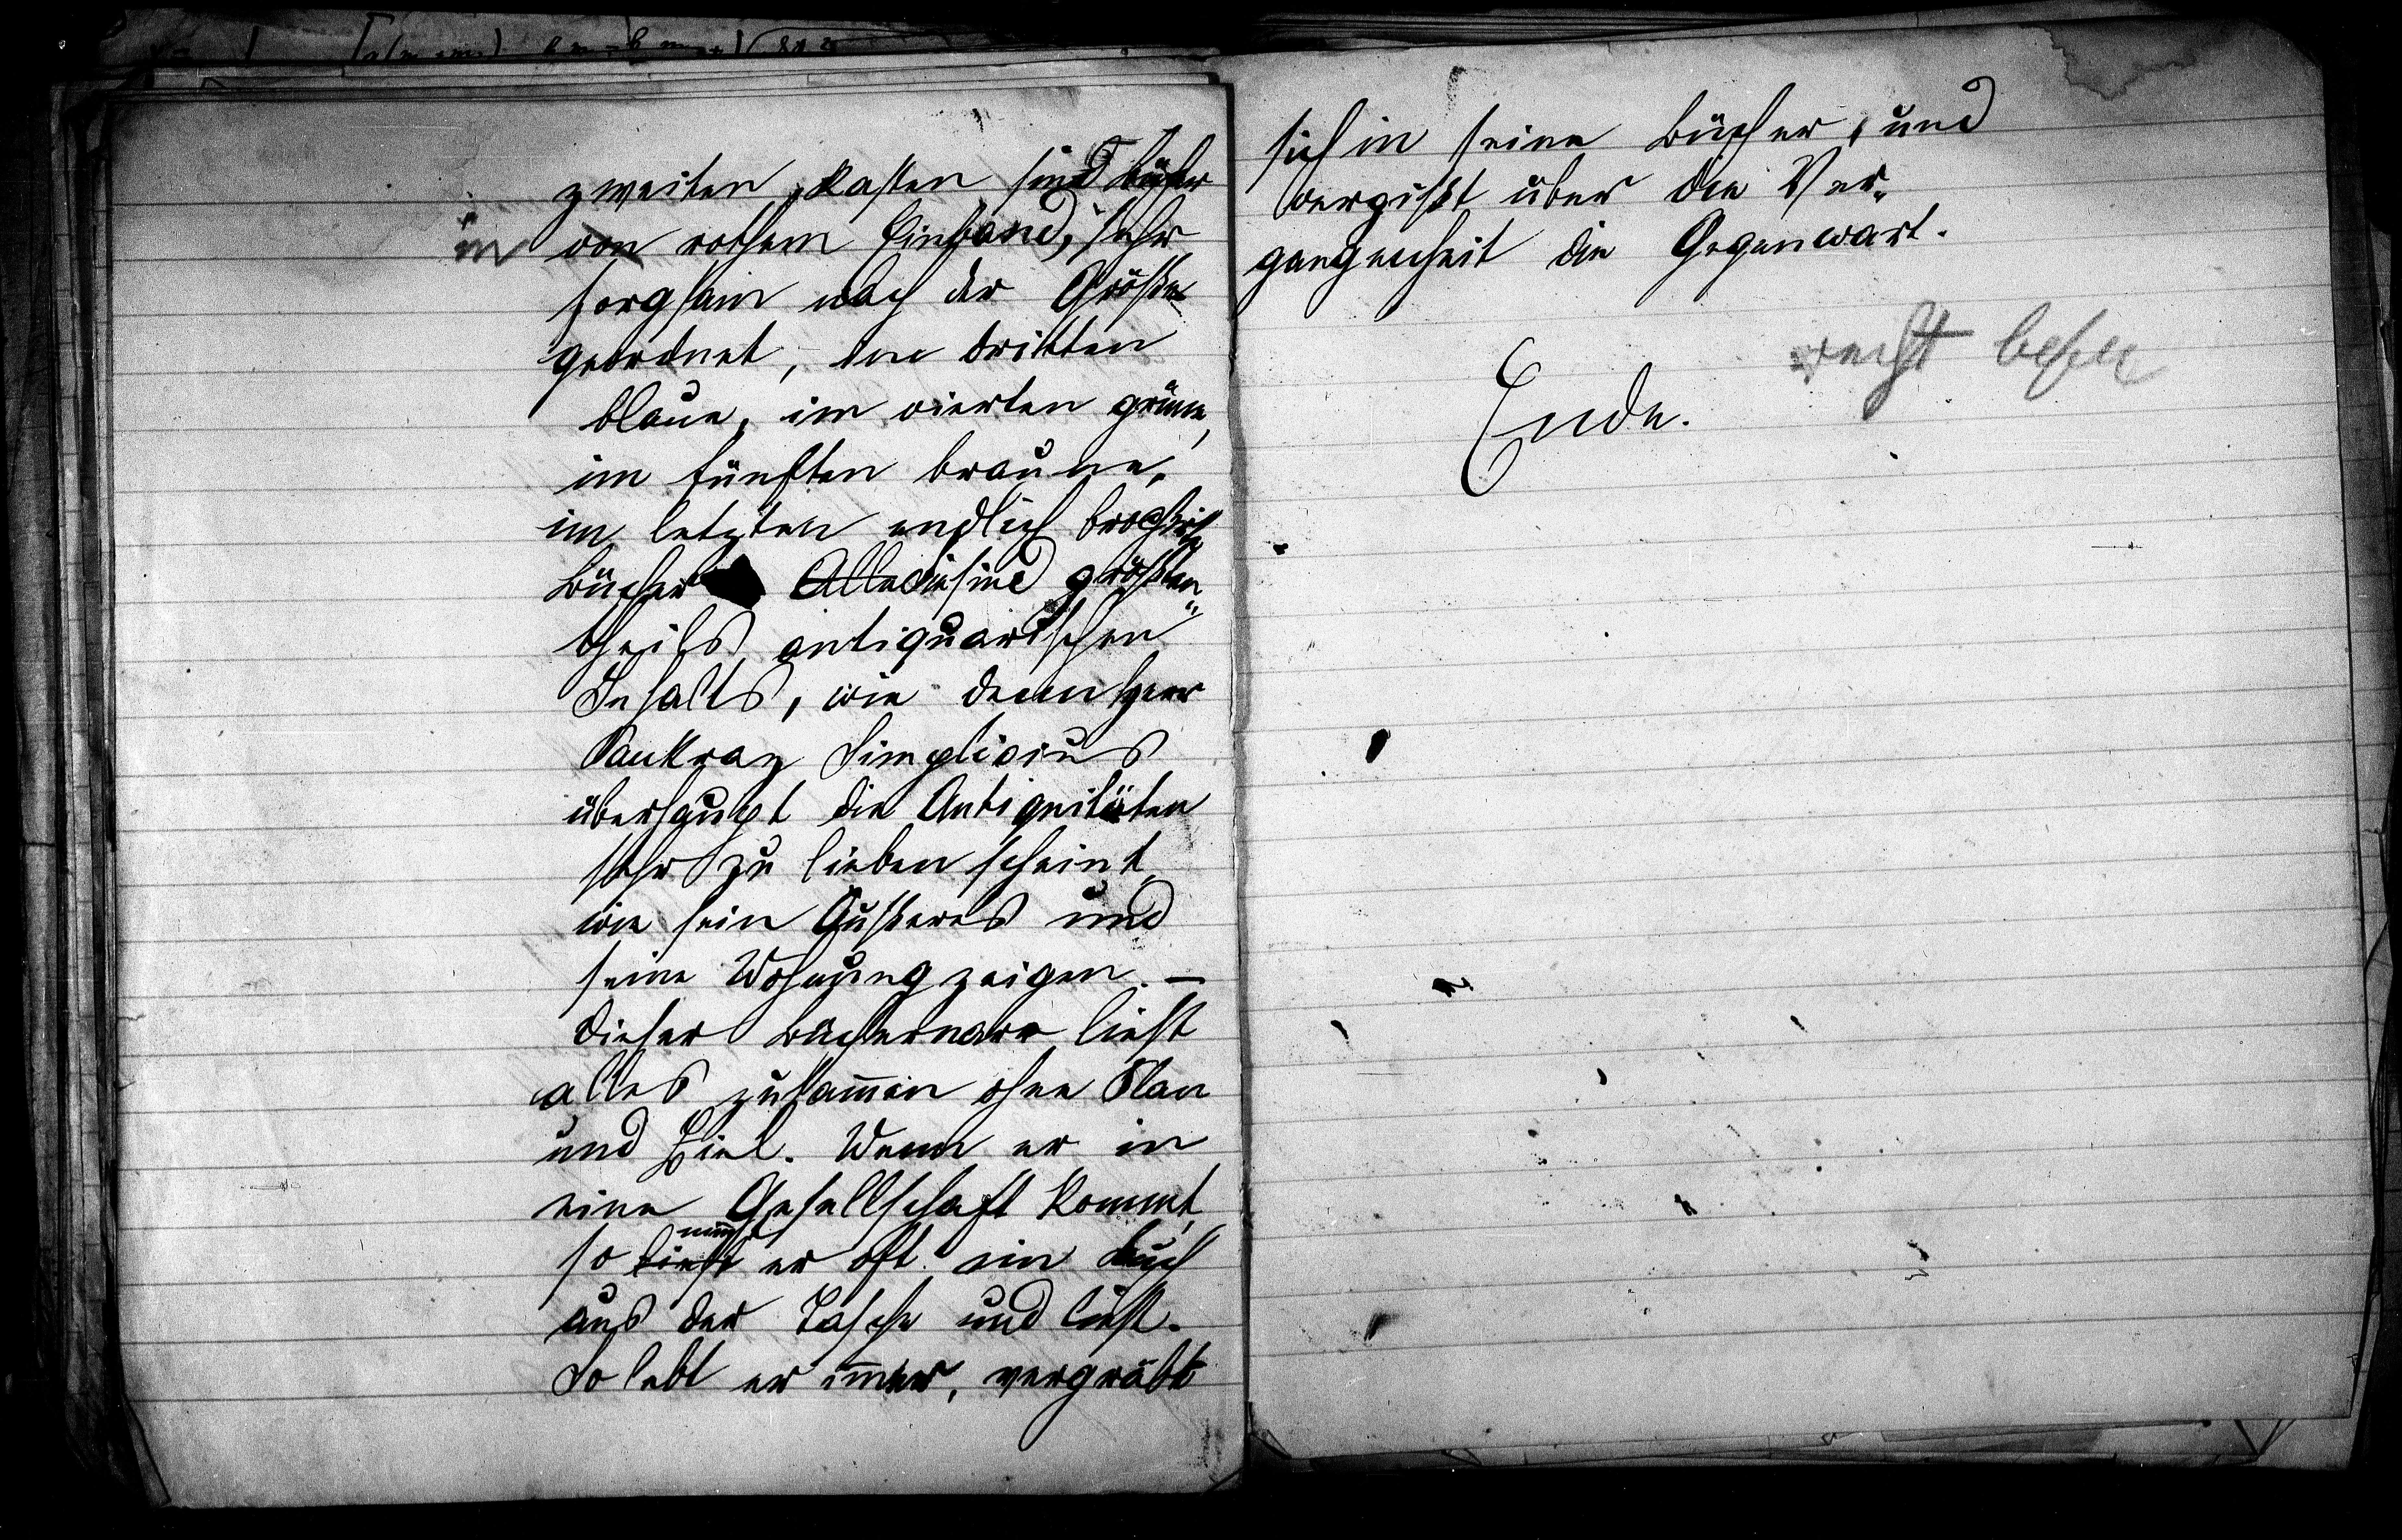 zweiten Kasten sind Bücher
in von rothem Einband, sehr
sorgsam nach der Größe
geordnet, im dritten
blaue, im vierten grüne,
im fünften braune,
im letzten endlich
Bücher Alle sind größten„
theils antiquarischen
Inhalts, wie denn Herr
Pankraz Simplicius
überhaupt die Antiquitäten
sehr zu lieben scheint,
wie sein Äußeres und
seine Wohnung zeigen. —
Dieser Büchernarr liest
alles zusam̅en ohne Plan
und Ziel. Wenn er in
eine Gesellschaft kommt,
nim̅t
so liest er oft ein Buch
aus der Tasche und liest.
So lebt er im̅er, vergräbt
sich in seine Bücher, und
vergißt über die Ver„
gangenheit die Gegenwart.
Ende.
recht